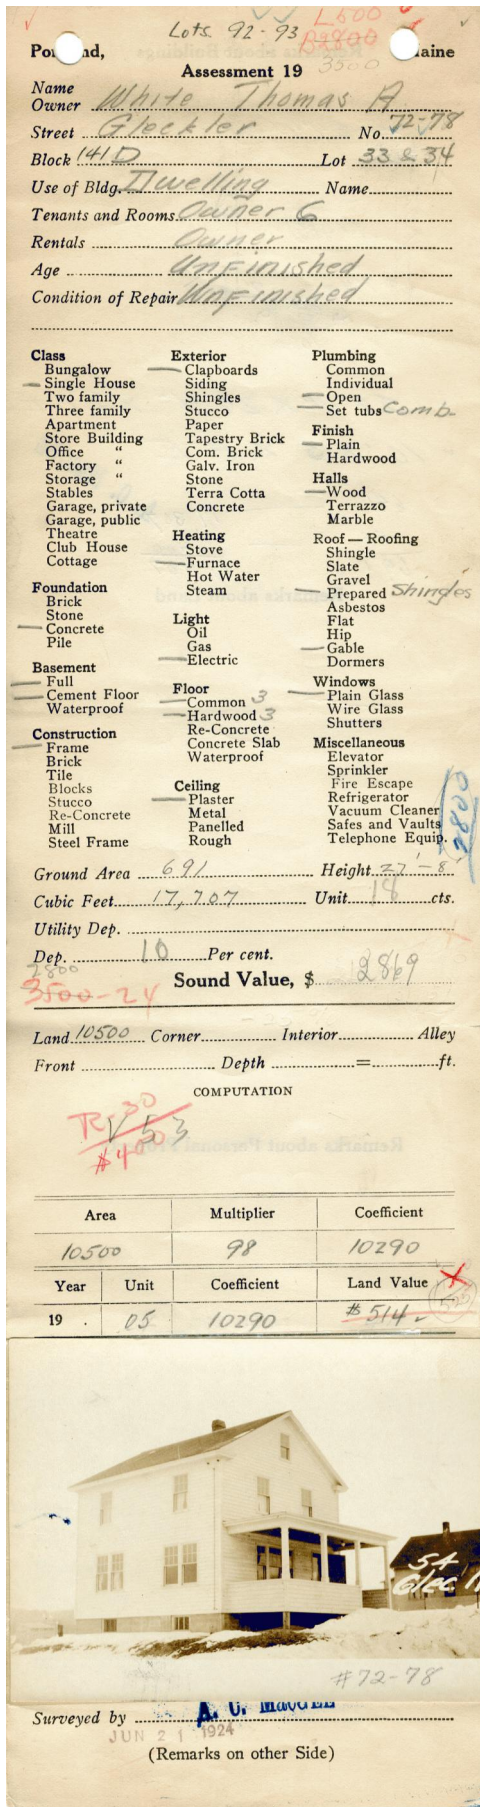 Lots. 92-93
L500
B2800
3500
Po nd, aine
Assessment 19
Name
Owner White Thomas A
Street Gleckler No. 72-78
Block 141 D Lot 33 & 34
Use of Bldg. Dwelling Name
Tenants and Rooms Owner 6
Rentals Owner
Age Unfinished
Condition of Repair Unfinished
Class
Bungalow
Single House
Two family
Three family
Apartment
Store Building
Office "
Factory "
Storage "
Stables
Garage, private
Garage, public
Theatre
Club House
Cottage
Foundation
Brick
Stone
Concrete
Pile
Basement
Full
Cement Floor
Waterproof
Construction
Frame
Brick
Tile
Blocks
Stucco
Re-Concrete
Mill
Steel Frame
Exterior
Clapboards
Siding
Shingles
Stucco
Paper
Tapestry Brick
Com. Brick
Galv. Iron
Stone
Terra Cotta
Concrete
Heating
Stove
Furnace
Hot Water
Steam
Light
Oil
Gas
Electric
Floor
Common 3
Hardwood 3
Re-Concrete
Concrete Slab
Waterproof
Ceiling
Plaster
Metal
Panelled
Rough
Plumbing
Common
Individual
Open
Set tubs Comb.
Finish
Plain
Hardwood
Halls
Wood
Terrazzo
Marble
Roof — Roofing
Shingle
Slate
Gravel
Prepared Shingles
Asbestos
Flat
Hip
Gable
Dormers
Windows
Plain Glass
Wire Glass
Shutters
Miscellaneous
Elevator
Sprinkler
Fire Escape
Refrigerator
Vacuum Cleaner
Safes and Vaults
Telephone Equip.
2800
Ground Area 691 Height 27'-8'
Cubic Feet 17,707 Unit 18 cts.
Utility Dep.
Dep. 10 Per cent.
2800
Sound Value, $ 2869
3500-24
Land 10500 Corner Interior Alley
Front Depth = ft.
COMPUTATION
R-30
V 53
$400
Area Multiplier Coefficient
10500 98 10290
Year Unit Coefficient Land Value
19 . 05 10290 $514.
525
54
#72-78
Surveyed by A. C. MacGEE
JUN 21 1924
(Remarks on other Side)